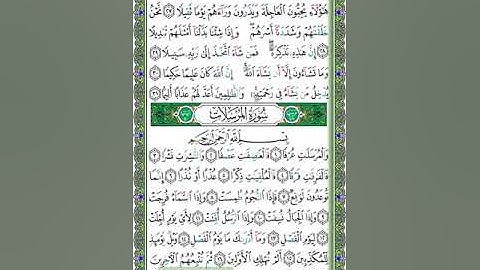 هَؤُلَاءِ يُحِبُّونَ الْعَاجِلَةَ وَيَذَرُونَ وَرَاءَهُمْ يَوْمًا ثَقِيلًا ٢٧ نَحْنُ
خَلَقْنَاهُمْ وَشَدَدْنَا أَسْرَهُمْ وَإِذَا شِئْنَا بَدَّلْنَا أَمْثَالَهُمْ تَبْدِيلًا
٢٨ إِنَّ هَذِهِ تَذْكِرَةٌ فَمَن شَاءَ اتَّخَذَ إِلَى رَبِّهِ سَبِيلًا ٢٩
وَمَا تَشَاءُونَ إِلَّا أَن يَشَاءَ اللَّهُ إِنَّ اللَّهَ كَانَ عَلِيمًا حَكِيمًا ٣٠
يُدْخِلُ مَن يَشَاءُ فِي رَحْمَتِهِ وَالظَّالِمِينَ أَعَدَّ لَهُمْ عَذَابًا أَلِيمًا ٣١
سُورَةُ الْمُرْسَلَاتِ
بِسْمِ اللَّهِ الرَّحْمَنِ الرَّحِيمِ
وَالْمُرْسَلَاتِ عُرْفًا ١ فَالْعَاصِفَاتِ عَصْفًا ٢ وَالنَّاشِرَاتِ نَشْرًا ٣
فَالْفَارِقَاتِ فَرْقًا ٤ فَالْمُلْقِيَاتِ ذِكْرًا ٥ عُذْرًا أَوْ نُذْرًا ٦ إِنَّمَا
تُوعَدُونَ لَوَاقِعٌ ٧ فَإِذَا النُّجُومُ طُمِسَتْ ٨ وَإِذَا السَّمَاءُ فُرِجَتْ
٩ وَإِذَا الْجِبَالُ نُسِفَتْ ١٠ وَإِذَا الرُّسُلُ أُقِّتَتْ ١١ لِأَيِّ يَوْمٍ أُجِّلَتْ
١٢ لِيَوْمِ الْفَصْلِ ١٣ وَمَا أَدْرَاكَ مَا يَوْمُ الْفَصْلِ ١٤ وَيْلٌ يَوْمَئِذٍ
لِّلْمُكَذِّبِينَ ١٥ أَلَمْ نُهْلِكِ الْأَوَّلِينَ ١٦ ثُمَّ نُتْبِعُهُمُ الْآخِرِينَ